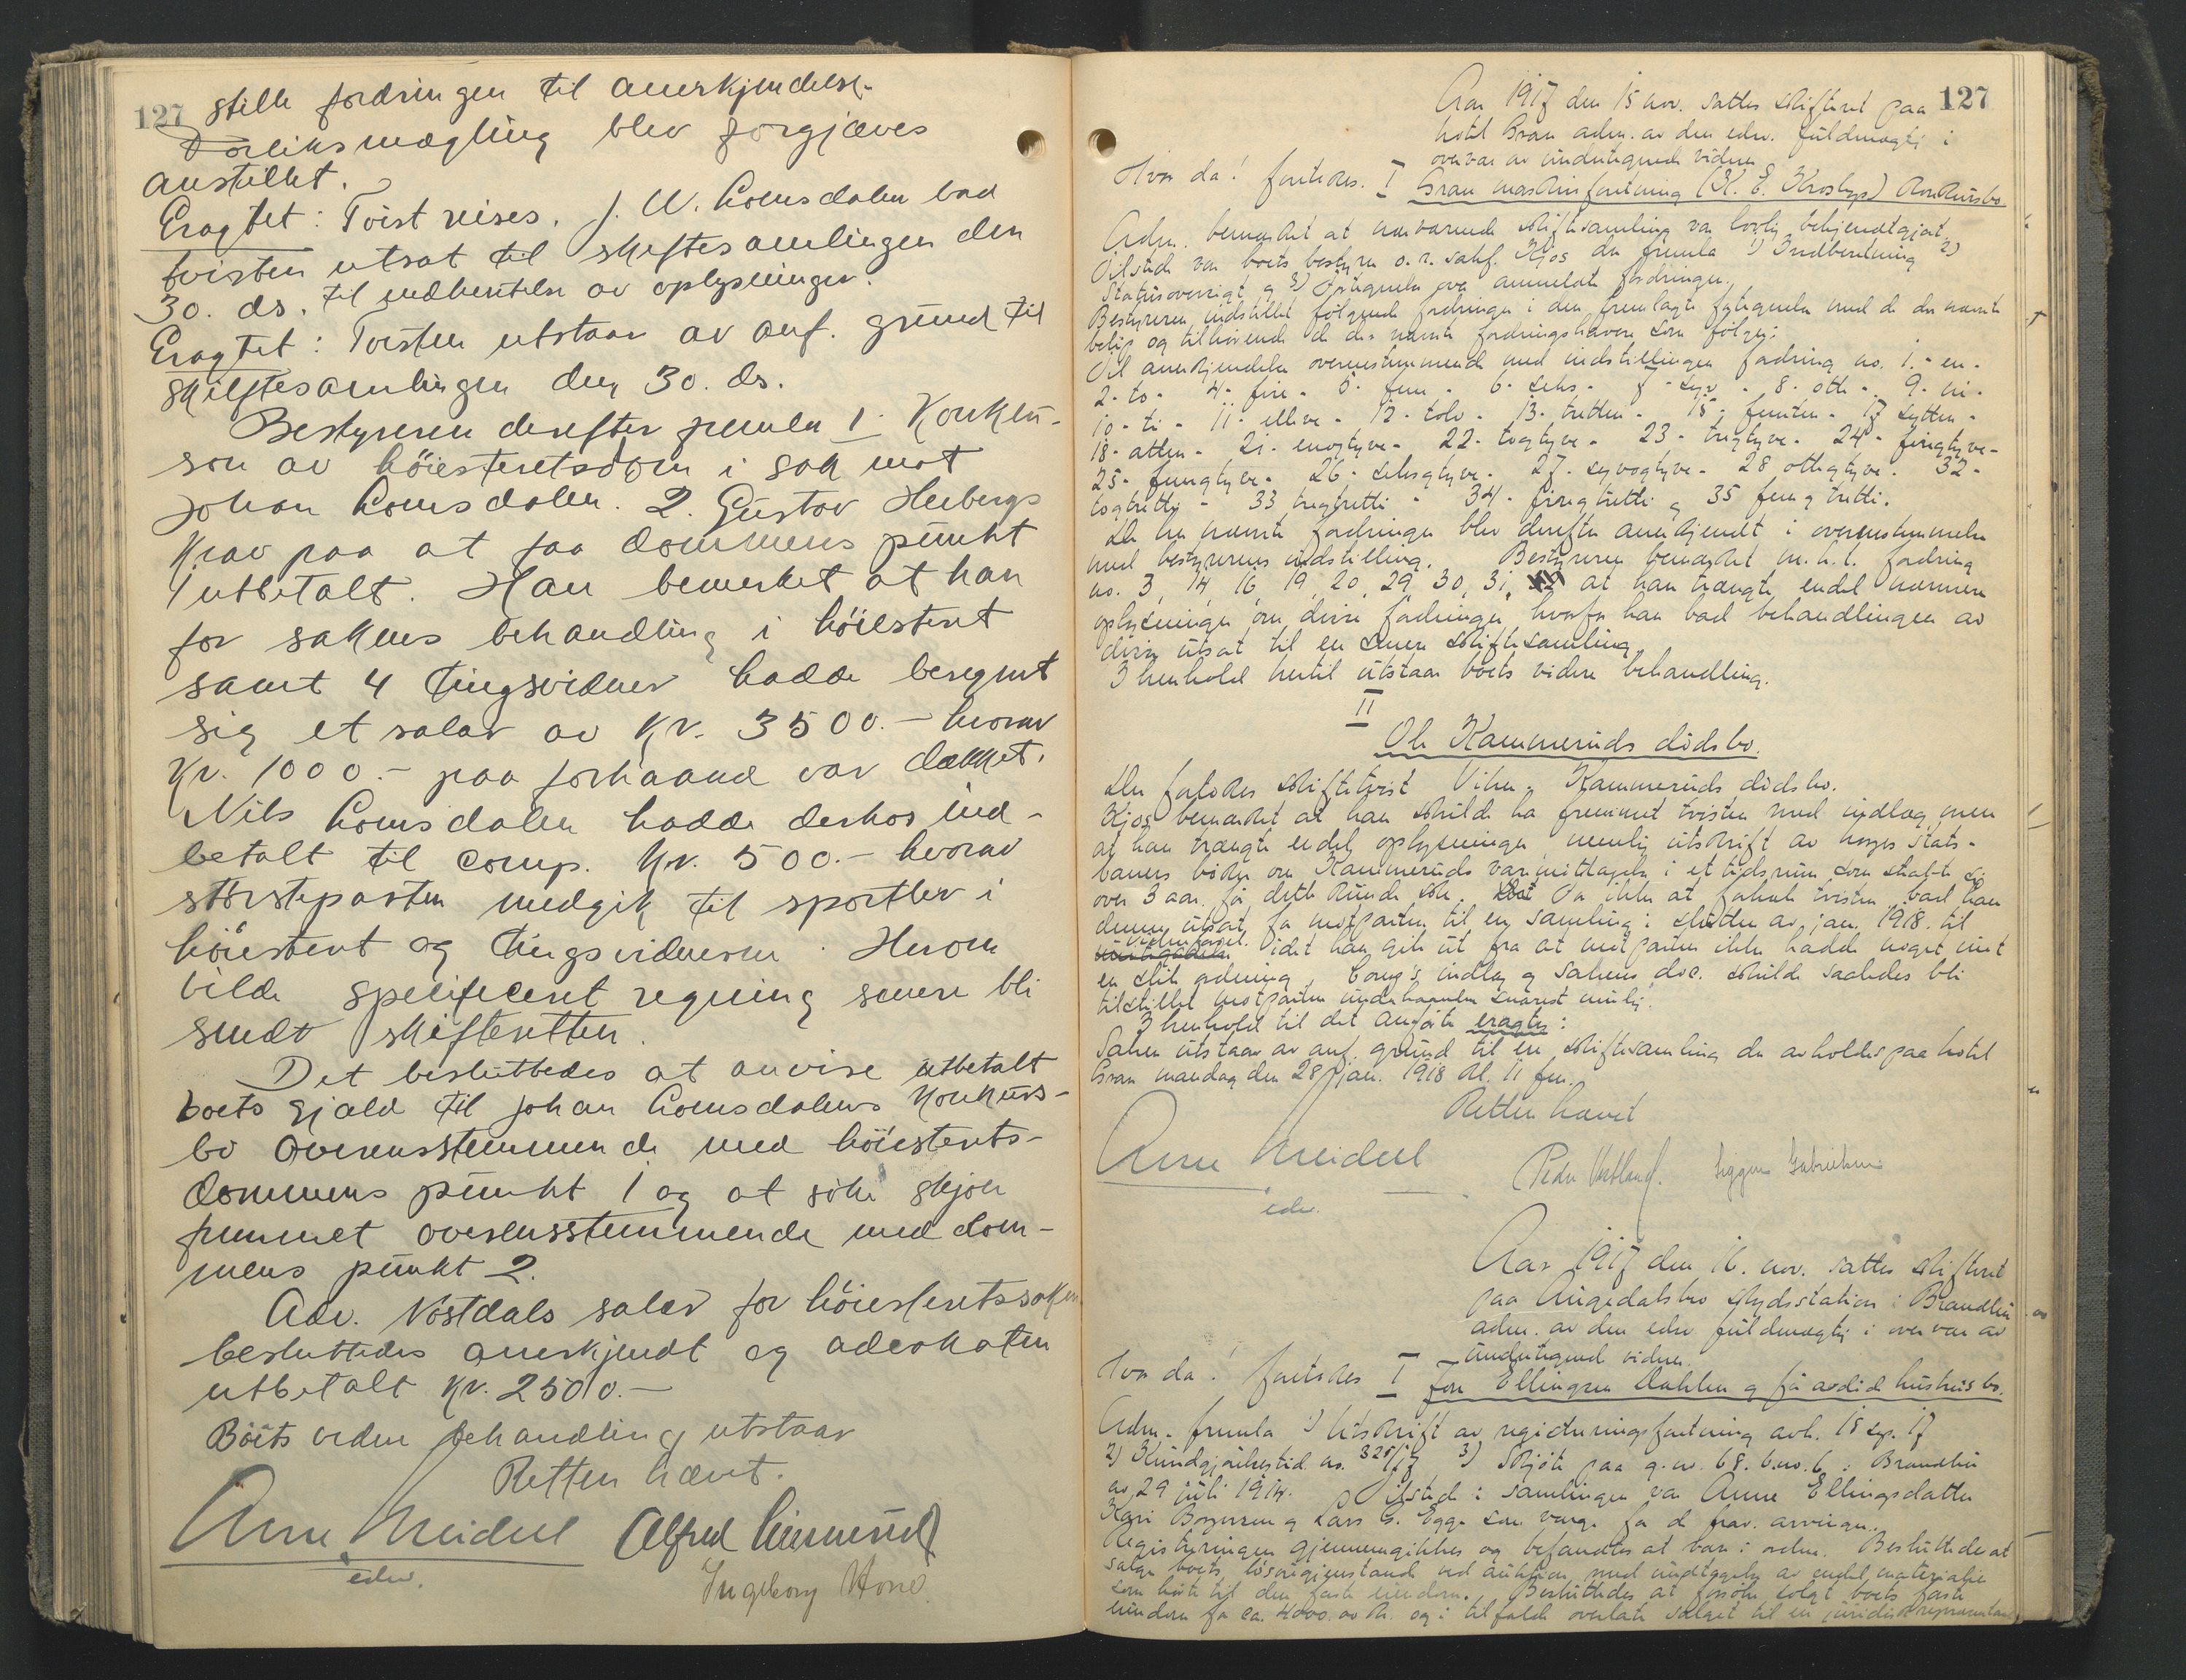 127
stille fordringen til anerkjendelse.
Forliksmægling blev forgjæves
anstillet.
Eragtet: Tvist reises. J. W. Lomsdalen bad
tvisten utsat til skiftesamlingen den
30. ds. til indhentelse av oplysninger.
Eragtet: Tvisten utstaar av anf. grund til
skiftesamlingen den 30. ds.
Bestyreren derefter fremla 1. Konklu-
sion av höiesteretsdom i sak mot
Johan Lomsdalen. 2. Gustav Heibergs
krav paa at faa dommens punkt
1 utbetalt. Han bemerket at han
for sakens behandling i höiesteret
samt 4 tingsvidner hadde beregnet
sig et salær av kr. 3500.- hvorav
kr. 1000.- paa forhaand var dækket.
Nils Lomsdalen hadde derhos ind-
betalt til comp. kr. 500.- hvorav
störsteparten medgik til sportler i
höiesteret og tingsvidnerne. Herom
vilde specificeret regning senere bli
sendt skifteretten.
Det besluttedes at anvise utbetalt
boets gjæld til Johan Lomsdalens konkurs-
bo overensstemmende med höiesterets-
dommens punkt 1 og at söke skjön
fremmet overensstemmende med dom-
mens punkt 2.
Adv. Nostdals salær for höiesteretssaken
besluttedes anerkjendt og advokaten
utbetalt kr. 2500.-
Boets videre behandling utstaar
Retten hævet.
Arne Meidell Alfred
edsv. Ingeborg
127
Aar 1917 den 15 nov. sattes skifteret paa
hotel Gran adm. av den edsv. fuldmægtig i
overvær av undertegnede vidner
Hvor da! foretokes. I Gran maskinforretning (K. E. Krosbys) konkursbo
Adm. bemerket at nærværende skiftesamling var lovlig bekjendtgjort.
Tilstede var boets bestyrer o.r. sakf. Kjos der fremla 1) Indberetning 2)
Statusoversigt og 3) Fortegnelse over anmeldte fordringer.
Bestyreren indstillet følgende fordringer i den fremlagte fortegnelse med de der nævnte
beløp og tilhørende de der nævnte fordringshavere som følger:
Til anerkjendelse overensstemmende med indstillingen fordring no. 1.- en-
2- to- 4- fire- 5- fem- 6- seks- 7- syv- 8- otte- 9- ni-
10- ti- 11- elleve- 12- tolv- 13- tretten- 15- femten- 17 sytten-
18- atten- 21- enogtyve- 22- togtyve- 23- tregtyve- 24- firegtyve-
25- femogtyve- 26- seksogtyve- 27- syvogtyve- 28 otteogtyve- 32-
togtretti- 33 tregtretti- 34- firegtretti og 35 femogtretti.
De her nævnte fordringer blev derefter anerkjendt i overensstemmelse
med bestyrerens indstilling. Bestyreren bemerket m.h.t. fordring
no. 3, 14, 16, 19, 20, 29, 30, 31, at han trængte endel nærmere
oplysninger om disse fordringer hvorfor han bad behandlingen av
disse utsat til en senere skiftesamling.
I henhold hertil utstaar boets videre behandling.
II
Ole Kammeruds dødsbo.
Der foretokes skiftetvist Viken - Kammeruds dødsbo.
Kjos bemerket at han skulde ha fremmet tvisten med indlæg men
at han trængte endel oplysninger, nemlig utskrift av norges stats-
baners bøker om Kammeruds varemottagelse i et tidsrum som strakte sig
over 3 aar før dette kunde ske. For ikke at forhale tvisten bad han
denne utsat for motparten til en samling i slutten av jan. 1918 til
idet han gik ut fra at motparten ikke hadde noget imot
en slik ordning. Comp's indlæg og sakens doc. skulde saaledes bli
tilstillet motparten underhaanden snarest mulig.
I henhold til det anførte eragtes:
Saken utstaar av anf. grund til en skiftesamling der avholdes paa hotel
Gran mandag den 28 jan. 1918 kl. 11 fm.
Retten hævet
Arne Meidell Peder Gabrielsen
edsv.
Aar 1917 den 16. nov. sattes skifteret
paa Augedalsbro skydsstation i Brandbu
adm. av den edsv. fuldmægtig i overvær av
undertegnede vidner.
Hvor da! foretokes I Ellingsen Dahlen og før avdøde hustrus bo.
Adm. fremla 1) Utskrift av registreringsforretning avh. 18 sep. 17
2) Kundgjørelsestid. no. 325/17 3) Skjøte paa g.no. 68. b.no. 6 i Brandbu
av 29 juli 1914. Tilstede i samlingen var Anne Ellingsdatter
Kari Borgersen og Lars G. Egge som verge for de frav. arvinger.
Registreringen gjennemgikkes og befandtes at være i orden. Besluttedes at
sælge boets løsøregjenstande ved auktion med undtagelse av endel materialer
som hørte til den faste eiendom. Besluttedes at forsøke solgt boets faste
eiendom for ca. 4000. og i tilfælde overlate salget til en juridisk representant